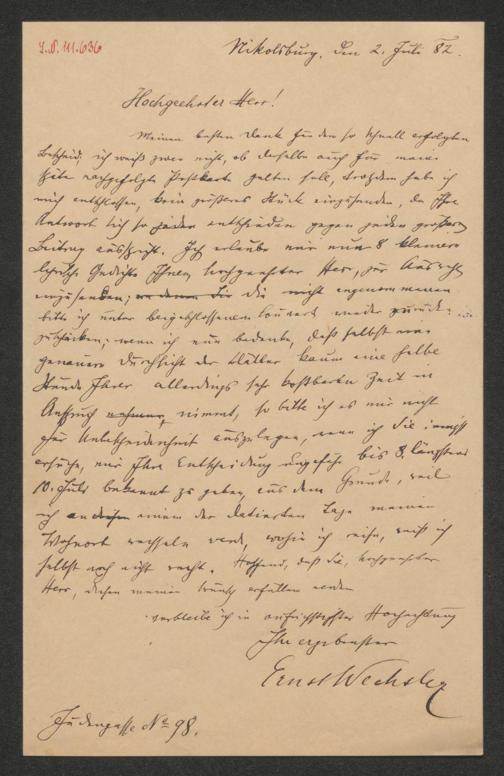 I.N. 111.636
Nikolsburg, den 2. Juli 82.
Hochgeehrter Herr!
Meinen besten Dank für den so schnell erfolgten
Bescheid; ich weiß zwar nicht, ob derselbe auch für meine
später nachgefolgte Postkarte gelten soll, trotzdem habe ich
mich entschlossen, kein größeres Stück einzusenden, da Ihre
Antwort sich so entschieden gegen jeden größeren
Beitrag ausspricht. Ich erlaube mir nun 8 kleinere
lyrische Gedichte Ihnen, hochgeehrter Herr, zur Ansicht
einzusenden, die nicht angenommenen
bitte ich unter beigeschlossenem Couvert wieder zurück-
zuschicken; wenn ich nun bedenke, daß selbst eine
genauere Durchsicht der Blätter kaum eine halbe
Stunde Ihrer allerdings sehr kostbaren Zeit in
Anspruch nimmt, so bitte ich es mir nicht
für Unbescheidenheit auszulegen, wenn ich Sie innigst
ersuche, mir Ihre Entscheidung ungefähr bis 8. längstens
10. Juli bekannt zu geben, aus dem Grunde, weil
ich an einem der datierten Tage meinen
Wohnort wechseln werde, wohin ich reise, weiß ich
selbst noch nicht recht. Hoffend, daß Sie, hochgeehrter
Herr, diesen meinen Wunsch erfüllen werden
verbleibe ich in aufrichtigster Hochachtung
Ihr ergebenster
Ernst Wechsler
Judengasse No 98.